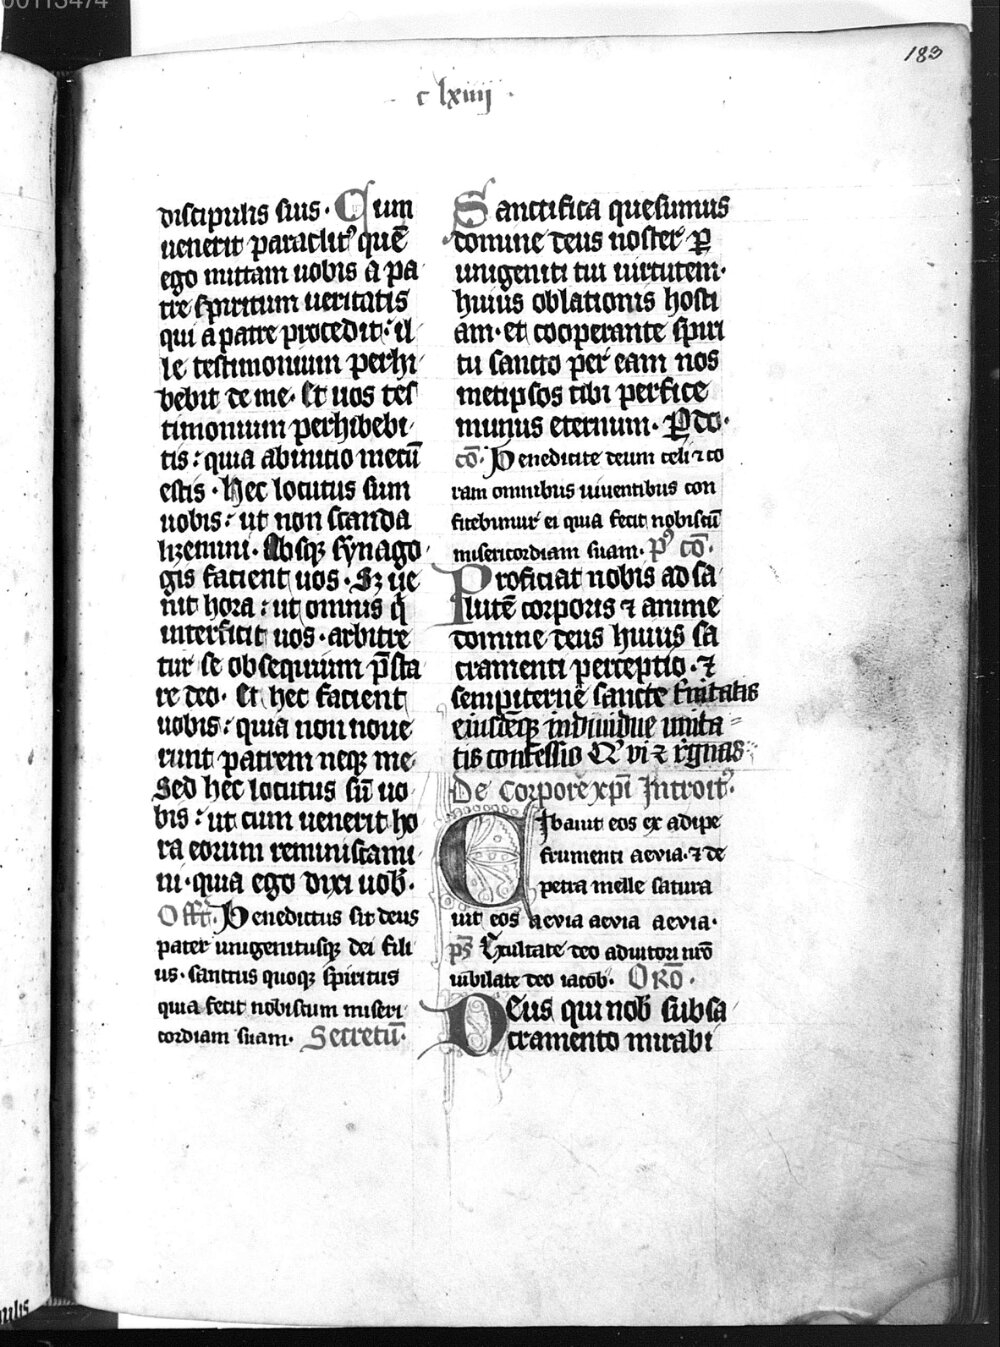 00113474
183
c lxiiij
discipulis suis. Cum
uenerit paraclit9 quē
ego mittam uobis a pa
tre spiritum ueritatis
qui a patre procedit: il
le testimonium perhi
bebit de me. Et uos tes
timonium perhibebi
tis: quia ab initio mecū
estis. Hec locutus sum
uobis: ut non scanda
lizemini. Absqꝫ synago
gis facient uos. Sꝫ ue
nit hora: ut omnis q̄
interficit uos. arbitre
tur se obsequium p̄sta
re deo. Et hec facient
uobis: quia non noue
runt patrem neqꝫ me.
Sed hec locutus sū uo
bis: ut cum uenerit ho
ra eorum reminiscami
ni. quia ego dixi uob.
Offr̄. Benedictus sit deus
pater unigenitusqꝫ dei fili
us. sanctus quoqꝫ spiritus
quia fecit nobiscum miseri
cordiam suam. Secretū.
Sanctifica quesumus
domine deus noster ꝑ
unigeniti tui uirtutem.
huius oblationis hosti
am. et cooperante spiri
tu sancto per eam nos
metipsos tibi perfice
munus eternum. P do.
cō. Benedicite deum celi ⁊ co
ram omnibus uiuentibus con
fitebimur ei quia fecit nobiscū
misericordiam suam. p9 cō.
Proficiat nobis ad sa
lutē corporis ⁊ anime
domine deus huius sa
cramenti perceptio. ⁊
sempiterne sancte trinitatis
eiusdēqꝫ indiuidue unita
tis confessio Qui vi ⁊ rgnas
De Corpore xpi Introit9.
Cibauit eos ex adipe
frumenti aevia. ⁊ de
petra melle satura
uit eos aevia aevia aevia.
ps Exultate deo adiutori nrō
iubilate deo iacob. Orō.
Deus qui nob sub sa
cramento mirabi